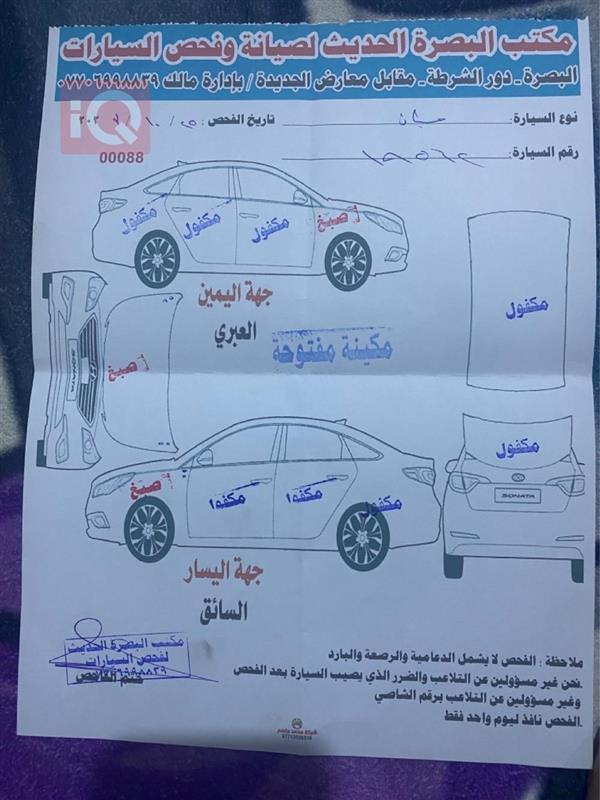 مكتب البصرة الحديث لصيانة وفحص السيارات
البصرة ـ دور الشرطة ـ مقابل معارض الجديدة / بإدارة مالك ٠٧٧٠٦٩٩٨٨٣٩
iQ
00088
نوع السيارة:
تاريخ الفحص: ٢٥ / ١٠ /
رقم السيارة: ١٩٥٦٢
مكفول
مكفول
مكفول
صبغ
جهة اليمين
العبري
مكفول
مكينة مفتوحة
صبغ
SONATA
صبغ
مكفول
مكفول
مكفول
مكفول
SONATA
جهة اليسار
السائق
مكتب البصرة الحديث
لفحص السيارات
٠٧٧٠٦٩٩٨٨٣٩
ختم الفاحص
ملاحظة : الفحص لا يشمل الدعامية والرصعة والبارد
نحن غير مسؤولين عن التلاعب والضرر الذي يصيب السيارة بعد الفحص.
وغير مسؤولين عن التلاعب برقم الشاصي
الفحص نافذ ليوم واحد فقط.